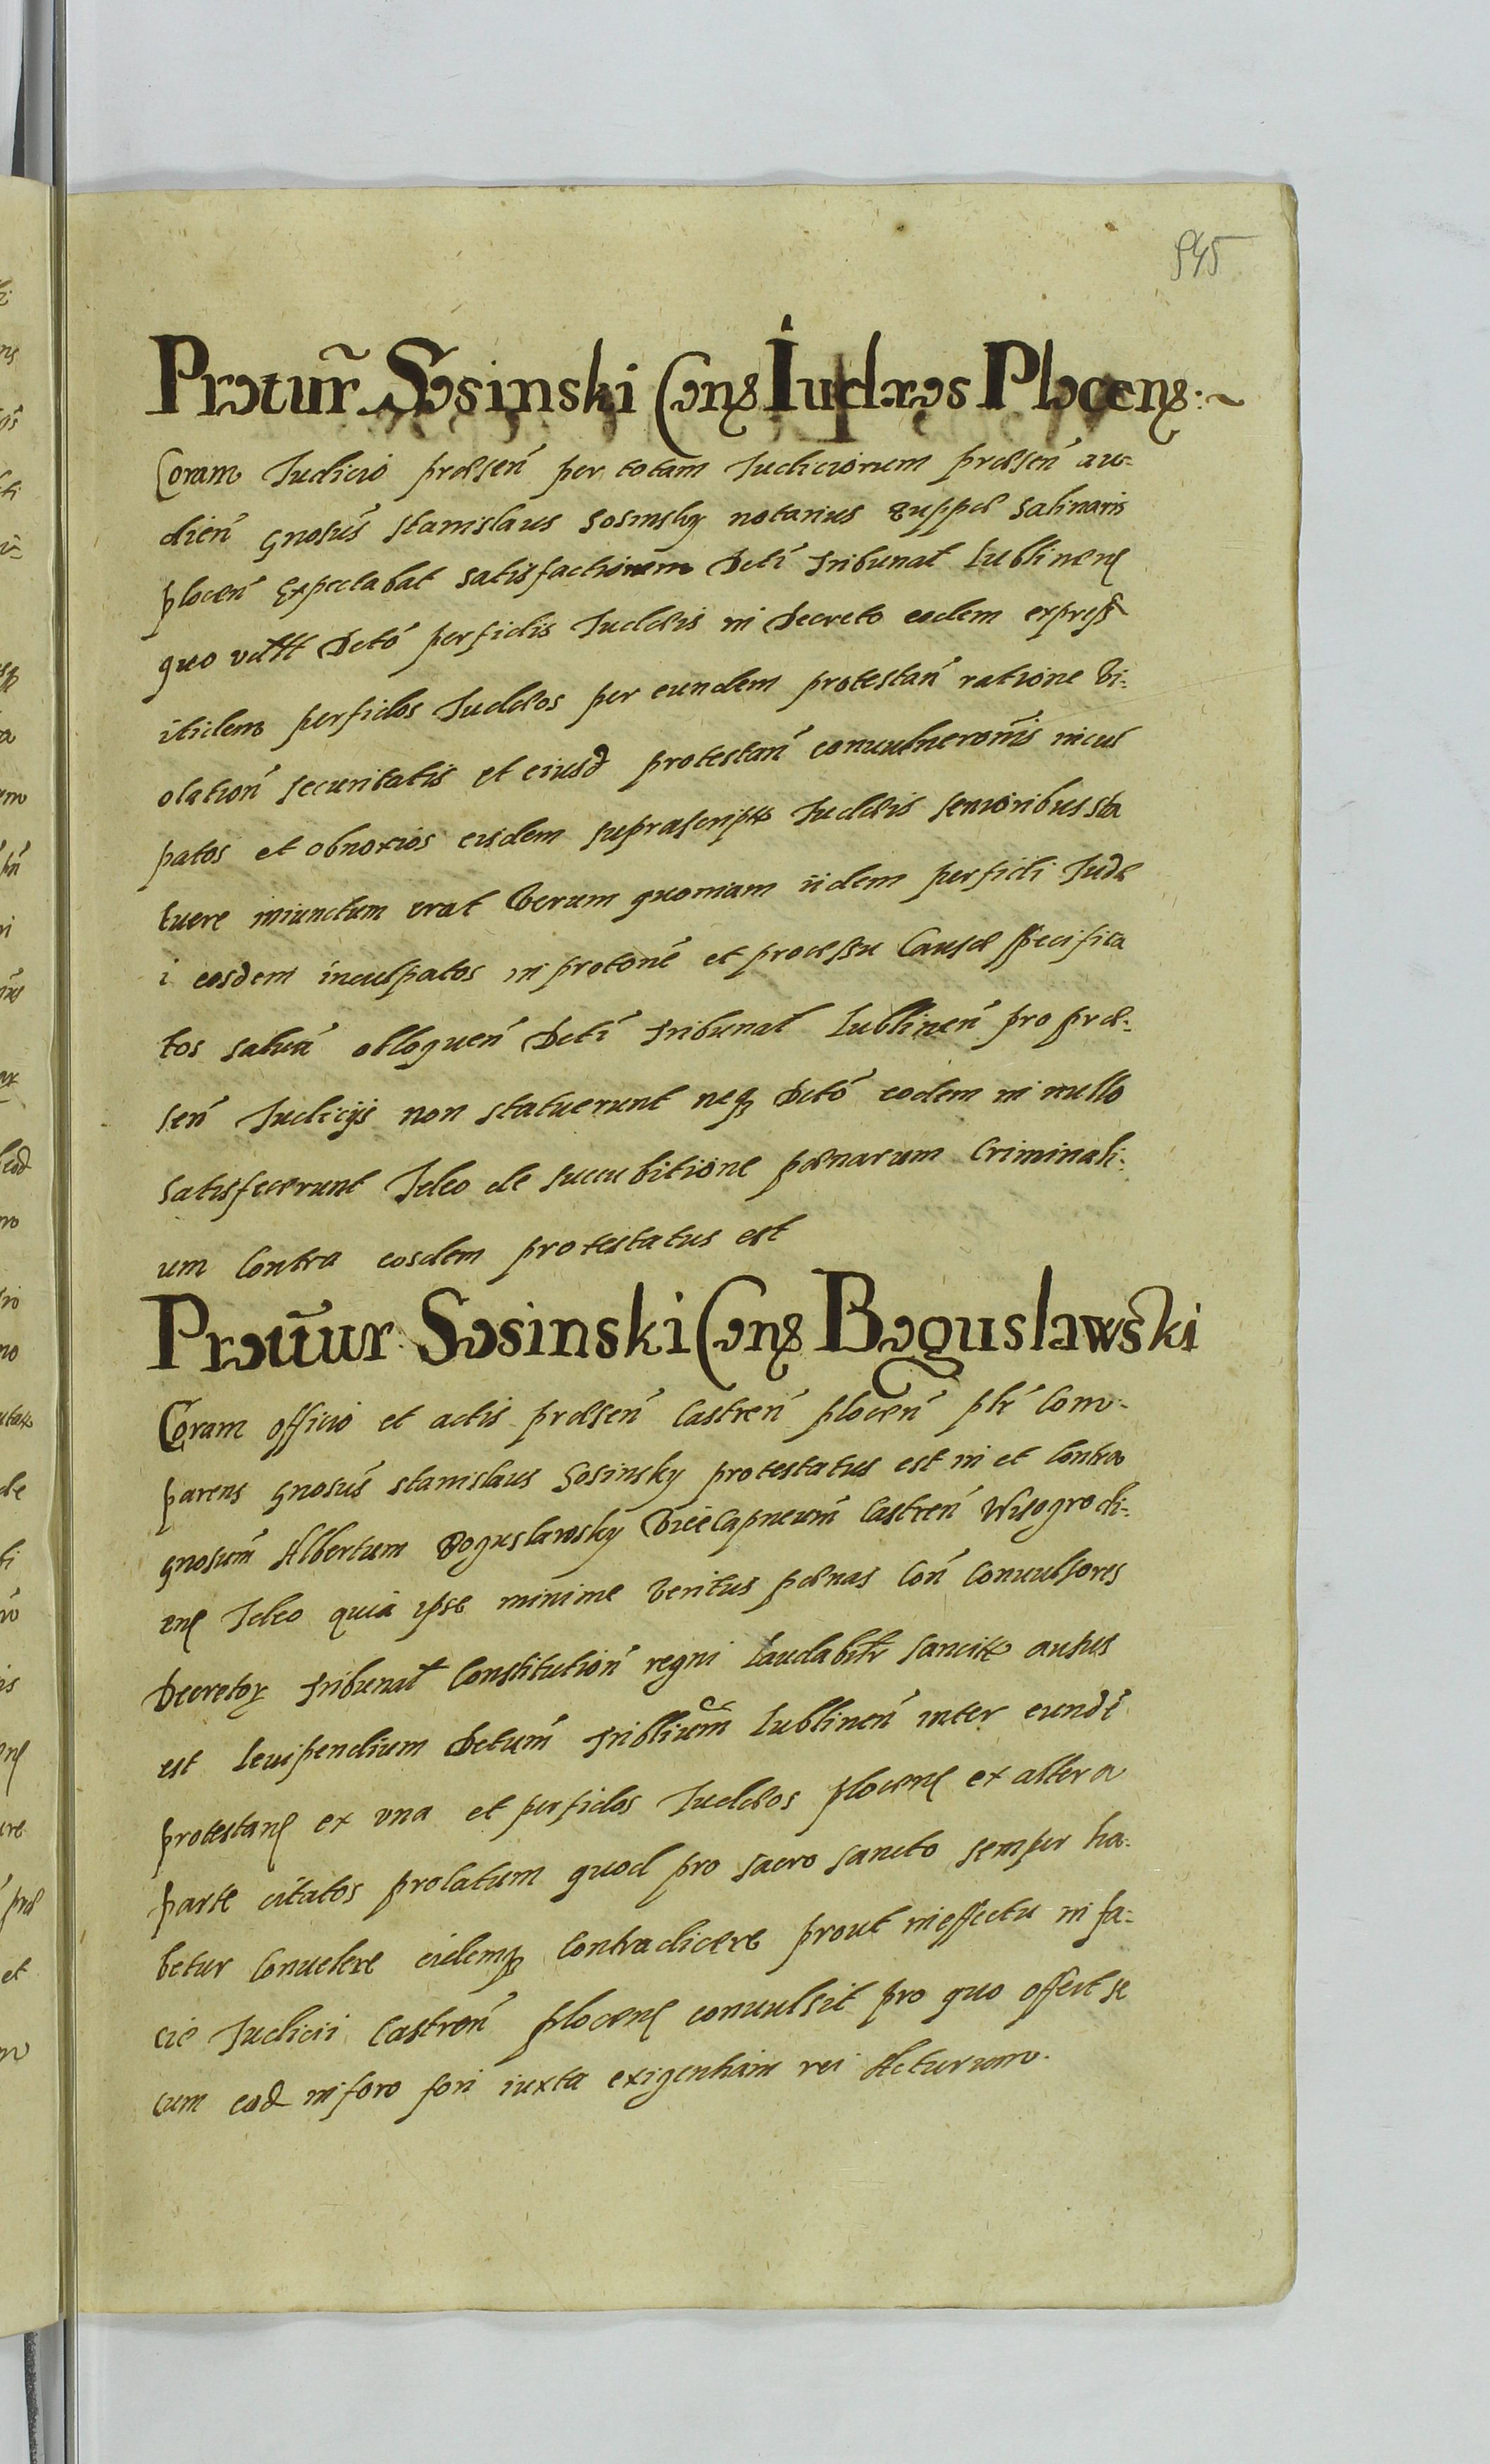 545
Protur̃ Sosinski Cons Iudæos Plocens:~
Coram Iudicio præsen̄ per totam Iudiciorum præsen̄ au-
dien̄ gnosus̄ Stanislaus Sosinsky notarius zuppæ Salinaris
plocen̄ Expectabat satisfactionem Dcti Tribunal Lublinens
quo Dcto perfidis Iudæis in Decreto eodem express
itidem perfidos Iudæos per eundem protestan̄ ratione Vi-
olation̄ securitatis et eiusd protestan̄ conuulneronis̄ incul
patos et obnoxios eisdem suprascriptis Iudæis senioribus sta
tuere iniunctum erat Verum quoniam iidem perfidi Iudæ
i eosdem inculpatos in protone et processu Causæ specifica
tos olloquen̄ Dcti Tribunal Lublinen̄ pro præ-
sen̄ Iudicijs non statuerunt neq Dcto eodem in nullo
satisfecerunt Ideo de succubitione pœnarum Criminali-
um Contra eosdem protestatus est
Protūur Sosinski Cons Boguslawski
Coram officio et actis præsen̄ Castren̄ plocen̄ plr̄ Com-
parens gnosus̄ Stanislaus Sosinsky protestatus est in et Contra
gnosum̄ Albertum Boguslawsky Vicecapneum̄ Castren̄ Wisogrodi-
ens Ideo quia ipse minime Veritus pœnas Con̄ Conuulsores
Decretor Tribunal Constitution̄ regni Laudabilr sancitas ausus
est Leuipendium Dctum̄ Triblium̄ Lublinen̄ inter eundē
protestans ex una et perfidos Iudæos plocens ex altera
parte citatos prolatum quod pro sacro sancto semper ha-
betur Conuelere eidemq Contradicere prout in effectu in fa-
cie Iudicii Castren̄ plocens conuulsit pro quo offert se
cum eod in foro fori iuxta exigentiam rei Acturum.